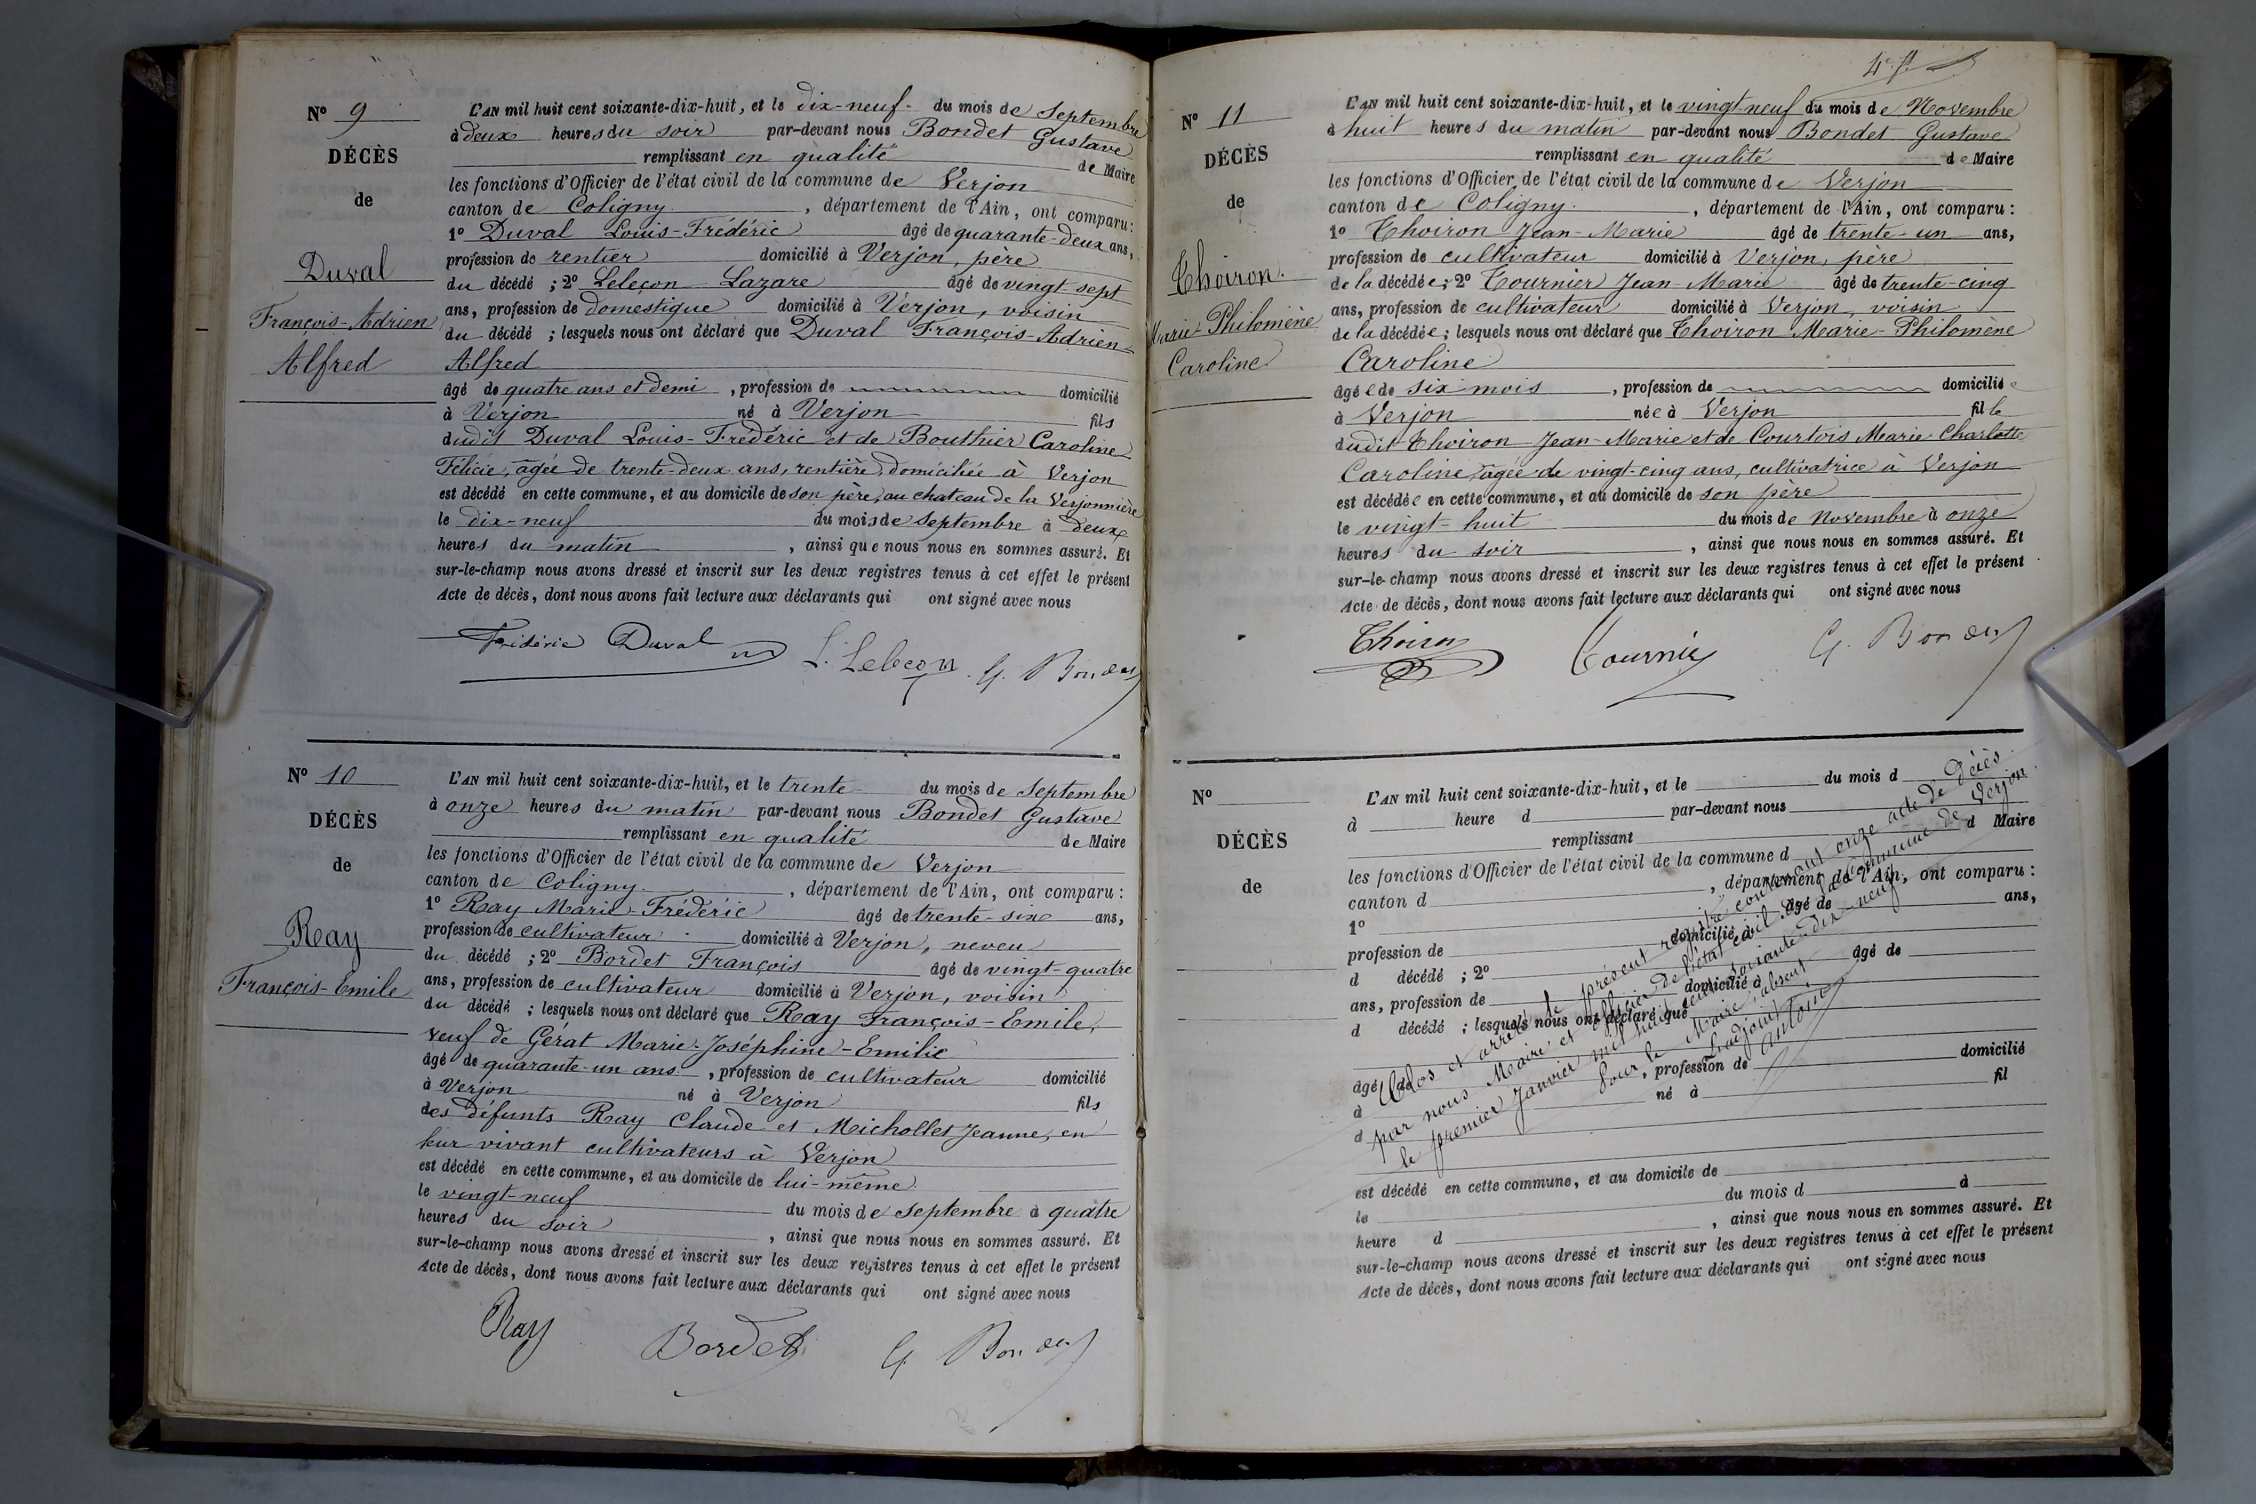 Nº 9
DÉCÈS
de
Duval
François-Adrien
Alfred
L'AN mil huit cent soixante-dix-huit, et le dix-neuf du mois de Septembre
à deux heures du soir par-devant nous Bondet Gustave
remplissant en qualité de Maire
les fonctions d'Officier de l'état civil de la commune de Verjon
canton de Coligny, département de l'Ain, ont comparu :
1º Duval Louis-Frédéric âgé de quarante-deux ans,
profession de rentier domicilié à Verjon, père
du décédé ; 2º Leleçon Lazare âgé de vingt-sept
ans, profession de domestique domicilié à Verjon, voisin
du décédé ; lesquels nous ont déclaré que Duval François-Adrien
Alfred
âgé de quatre ans et demi, profession de domicilié
à Verjon né à Verjon fils
dudit Duval Louis-Frédéric et de Bouthier Caroline
Félicie, âgée de trente-deux ans, rentière, domiciliée à Verjon
est décédé en cette commune, et au domicile de son père, au chateau de la Verjonnière
le dix-neuf du mois de septembre à deux
heures du matin, ainsi que nous nous en sommes assuré. Et
sur-le-champ nous avons dressé et inscrit sur les deux registres tenus à cet effet le présent
Acte de décès, dont nous avons fait lecture aux déclarants qui ont signé avec nous
Frédéric Duval L. Leleçon G. Bondet
Nº 10
DÉCÈS
de
Ray
François-Emile
L'AN mil huit cent soixante-dix-huit, et le trente du mois de Septembre
à onze heures du matin par-devant nous Bondet Gustave
remplissant en qualité de Maire
les fonctions d'Officier de l'état civil de la commune de Verjon
canton de Coligny, département de l'Ain, ont comparu :
1º Ray Marie-Frédéric âgé de trente-six ans,
profession de cultivateur domicilié à Verjon, neveu
du décédé ; 2º Bordet François âgé de vingt-quatre
ans, profession de cultivateur domicilié à Verjon, voisin
du décédé ; lesquels nous ont déclaré que Ray François-Emile,
veuf de Gérat Marie-Joséphine-Emilie
âgé de quarante-un ans, profession de cultivateur domicilié
à Verjon né à Verjon fils
des défunts Ray Claude et Michollet Jeanne, en
leur vivant cultivateurs à Verjon
est décédé en cette commune, et au domicile de lui-même
le vingt-neuf du mois de septembre à quatre
heures du soir, ainsi que nous nous en sommes assuré. Et
sur-le-champ nous avons dressé et inscrit sur les deux registres tenus à cet effet le présent
Acte de décès, dont nous avons fait lecture aux déclarants qui ont signé avec nous
Ray Bordet G. Bondet
Nº 11
DÉCÈS
de
Thoiron
Marie-Philomène
Caroline
L'AN mil huit cent soixante-dix-huit, et le vingt-neuf du mois de Novembre
à huit heures du matin par-devant nous Bondet Gustave
remplissant en qualité de Maire
les fonctions d'Officier de l'état civil de la commune de Verjon
canton de Coligny, département de l'Ain, ont comparu :
1º Thoiron Jean-Marie âgé de trente-un ans,
profession de cultivateur domicilié à Verjon, père
de la décédée ; 2º Tournier Jean-Marie âgé de trente-cinq
ans, profession de cultivateur domicilié à Verjon, voisin
de la décédée ; lesquels nous ont déclaré que Thoiron Marie-Philomène
Caroline
âgée de six mois, profession de domiciliée
à Verjon née à Verjon fille
dudit Thoiron Jean-Marie et de Courtois Marie Charlotte
Caroline, âgée de vingt-cinq ans, cultivatrice à Verjon
est décédée en cette commune, et au domicile de son père
le vingt-huit du mois de Novembre à onze
heures du soir, ainsi que nous nous en sommes assuré. Et
sur-le-champ nous avons dressé et inscrit sur les deux registres tenus à cet effet le présent
Acte de décès, dont nous avons fait lecture aux déclarants qui ont signé avec nous
Thoiron Tournier G. Bondet
Nº
DÉCÈS
de
L'AN mil huit cent soixante-dix-huit, et le du mois d
à heure d par-devant nous
remplissant d Maire
les fonctions d'Officier de l'état civil de la commune d
canton d , département de l'Ain, ont comparu :
1º âgé de ans,
profession de domicilié à
d décédé ; 2º âgé de
ans, profession de domicilié à
d décédé ; lesquels nous ont déclaré que
âgé de , profession de domicilié
à né à fil
d
est décédé en cette commune, et au domicile de
le du mois d à
heure d , ainsi que nous nous en sommes assuré. Et
sur-le-champ nous avons dressé et inscrit sur les deux registres tenus à cet effet le présent
Acte de décès, dont nous avons fait lecture aux déclarants qui ont signé avec nous
Clos et arrêté le présent registre contenant onze acte de Décès
par nous Maire et officier de l'état civil de la commune de Verjon
le premier Janvier mil huit cent soixante-dix-neuf
Pour le Maire absent
L'adjoint
Antoin